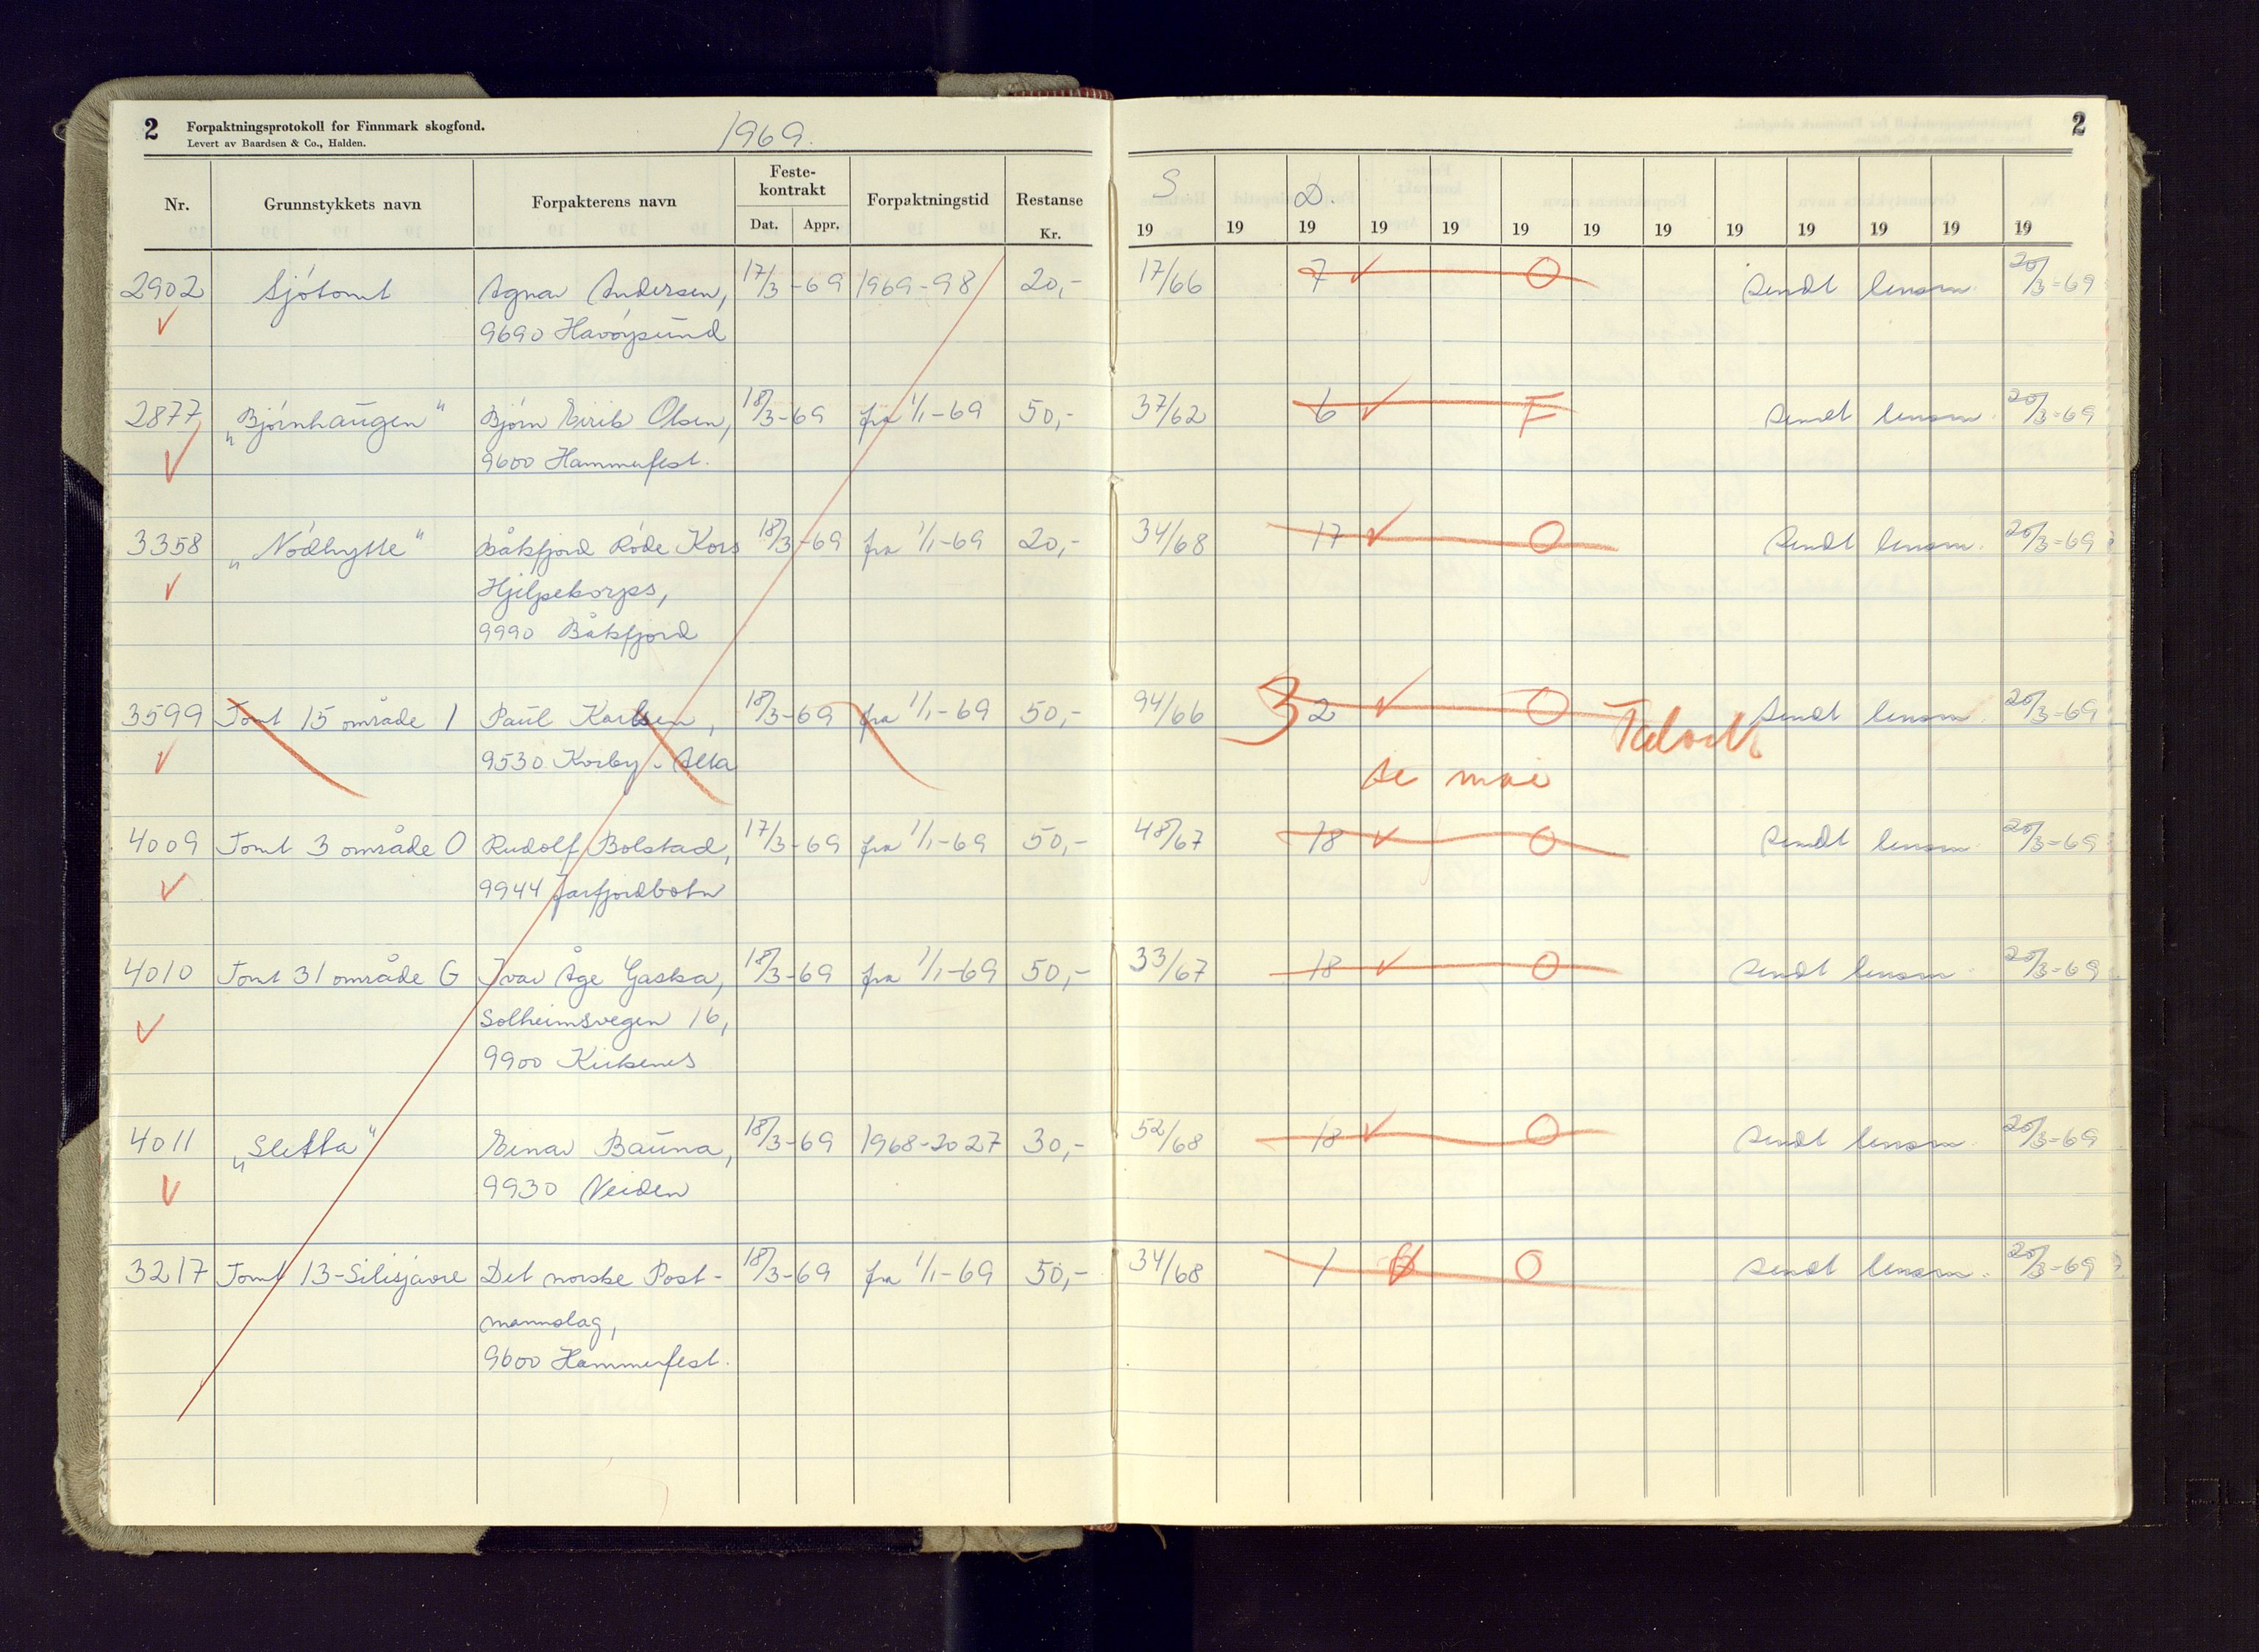 2 Forpaktningsprotokoll for Finnmark skogfond. 1969. 2
Levert av Baardsen & Co., Halden.
Nr. Grunnstykkets navn Forpakterens navn Feste-kontrakt Dat. Appr. Forpaktningstid Restanse Kr. S 19 19 D. 19 19 19 19 19 19 19 19 19 19 19
2902 Sjøtomt Agnar Andersen, 17/3-69 1969-98 20,- 17/66 7 O sendt lensm. 20/3-69
9690 Havøysund
2877 „Bjørnhaugen" Bjørn Eirik Olsen, 18/3-69 fra 1/1-69 50,- 37/62 6 F sendt lensm. 20/3-69
9600 Hammerfest.
3358 „Nødhytte" Båtsfjord Røde Kors 18/3-69 fra 1/1-69 20,- 34/68 17 O sendt lensm. 20/3-69
Hjelpekorps,
9990 Båtsfjord
3599 Tomt 15 område 1 Paul Karlsen, 18/3-69 fra 1/1-69 50,- 94/66 3 2 O sendt lensm. 20/3-69
9530 Korby - Alta se mai
4009 Tomt 3 område O Rudolf Bolstad, 17/3-69 fra 1/1-69 50,- 48/67 18 O sendt lensm. 20/3-69
9944 Jarfjordbotn
4010 Tomt 31 område G Ivar Åge Gaska, 18/3-69 fra 1/1-69 50,- 33/67 18 O sendt lensm. 20/3-69
Solheimsvegen 16,
9900 Kirkenes
4011 „Sletta" Einar Bauna, 18/3-69 1968-2027 30,- 52/68 18 O sendt lensm. 20/3-69
9930 Neiden
3217 Tomt 13-Silisjavre Det norske Post-18/3-69 fra 1/1-69 50,- 34/68 1 O sendt lensm. 20/3-69
mannslag,
9600 Hammerfest.